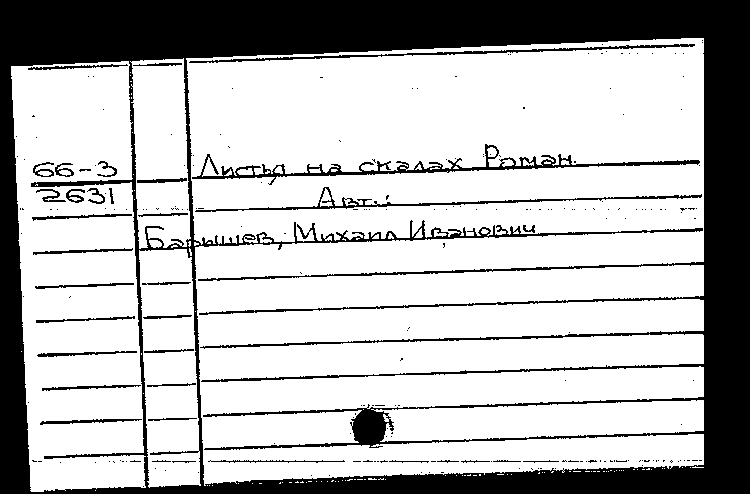 66-3 Листья на скалах Роман.
2631 Авт.:
Барышев, Михаил Иванович